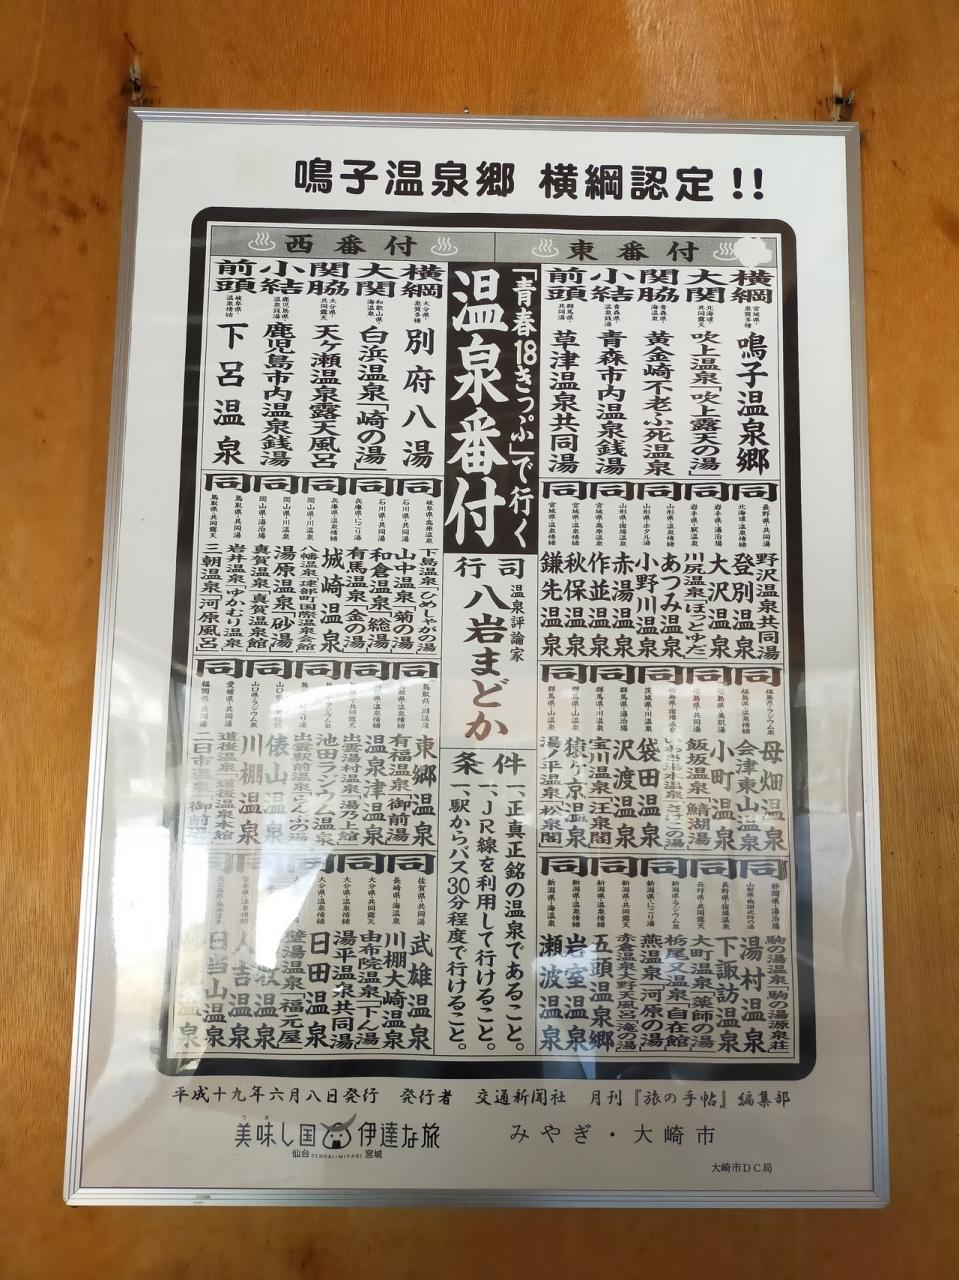 鳴子温泉郷 横綱認定!!
東番付
横綱 宮城県・泉質多種 鳴子温泉郷
大関 北海道・共同露天 吹上温泉「吹上露天の湯」
関脇 青森県・海温泉 黄金崎不老ふ死温泉
小結 青森県・温泉銭湯 青森市内温泉銭湯
前頭 群馬県・共同湯 草津温泉共同湯
同 長野県・共同湯 野沢温泉共同湯
北海道・温泉情緒 登別温泉
同 岩手県・湯治場 大沢温泉
岩手県・駅温泉 川尻温泉「ほっとゆだ」
同 あつみ温泉
山形県・ホタル湯 小野川温泉
同 山形県・共同湯 赤湯温泉
宮城県・高原温泉 作並温泉
同 宮城県・温泉情緒 秋保温泉
宮城県・共同湯 鎌先温泉
同 福島県・ラジウム泉 母畑温泉
福島県・温泉情緒 会津東山温泉
同 福島県・美肌湯 小町温泉
福島県・共同湯 飯坂温泉「鯖湖湯」
同
茨城県・川温泉 袋田温泉
同 群馬県・湯治場 沢渡温泉
群馬県・川温泉 宝川温泉「汪泉閣」
同 群馬県・山温泉 猿ヶ京温泉
群馬県・山温泉 湯ノ平温泉「松泉閣」
同 静岡県・湯治場 駒の湯温泉「駒の湯源泉荘」
湯村温泉
同 長野県・宿場温泉 下諏訪温泉
長野県・共同露天 大町温泉「薬師の湯」
同 新潟県・ラジウム泉 栃尾又温泉「自在館」
新潟県・にごり湯 燕温泉「河原の湯」
同 新潟県・共同露天 赤倉温泉大野天風呂「滝の湯」
新潟県・温泉情緒 五頭温泉郷
同 新潟県・温泉情緒 岩室温泉
新潟県・海温泉 瀬波温泉
「青春18きっぷ」で行く
温泉番付
行司
温泉評論家
八岩まどか
条件
一、正真正銘の温泉であること。
一、JR線を利用して行けること。
一、駅からバス30分程度で行けること。
西番付
横綱 大分県・泉質多種 別府八湯
大関 和歌山県・海温泉 白浜温泉「崎の湯」
関脇 大分県・共同露天 天ヶ瀬温泉露天風呂
小結 鹿児島県・温泉銭湯 鹿児島市内温泉銭湯
前頭 岐阜県・温泉情緒 下呂温泉
同 岐阜県・高原温泉 下島温泉「ひめしゃがの湯」
石川県・共同湯 山中温泉「菊の湯」
同 石川県・共同湯 和倉温泉「総湯」
兵庫県・にごり湯 有馬温泉「金の湯」
同 兵庫県・温泉情緒 城崎温泉
岡山県・川温泉 八幡温泉「建部町国際温泉会館」
同 岡山県・川温泉 湯原温泉「砂湯」
岡山県・湯治場 真賀温泉「真賀温泉館」
同 鳥取県・共同湯 岩井温泉「ゆかむり温泉」
鳥取県・共同露天 三朝温泉「河原風呂」
同 鳥取県・湖温泉 東郷温泉
有福温泉「御前湯」
同 温泉津温泉
出雲湯村温泉「湯乃上館」
同 池田ラジウム温泉
出雲駅前温泉「らんぷの湯」
同 俵山温泉
山口県・ラジウム泉 川棚温泉
同 愛媛県・共同湯 道後温泉「道後温泉本館」
福岡県・共同湯 二日市温泉「御前湯」
同 佐賀県・共同湯 武雄温泉
長崎県・海温泉 川棚大崎温泉
同 大分県・共同露天 由布院温泉「下ん湯」
大分県・共同湯 湯平温泉共同湯
同 大分県・温泉情緒 日田温泉
壁湯温泉「福元屋」
同
人吉温泉
同 日当山温泉
平成十九年六月八日発行 発行者 交通新聞社 月刊『旅の手帖』編集部
美味し国 伊達な旅
仙台 SENDAI・MIYAGI 宮城
みやぎ・大崎市
大崎市DC局